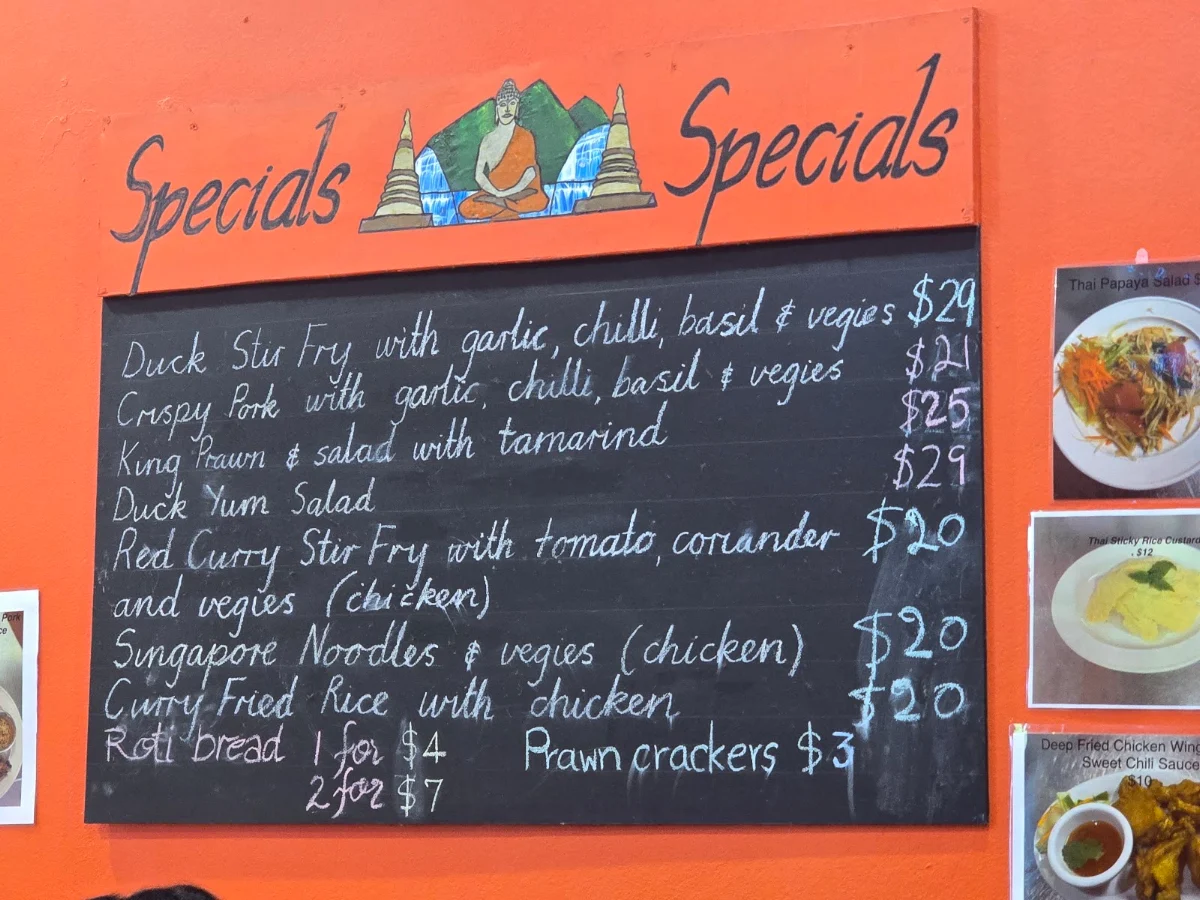 Specials Specials
Duck Stir Fry with garlic, chilli, basil & vegies $29
Crispy Pork with garlic, chilli, basil & vegies $21
King Prawn & salad with tamarind $25
Duck Yum Salad $29
Red Curry Stir Fry with tomato, coriander $20
and vegies (chicken)
Singapore Noodles & vegies (chicken) $20
Curry Fried Rice with chicken $20
Roti bread 1 for $4 Prawn crackers $3
2 for $7
Thai Papaya Salad
Thai Sticky Rice Custard
. $12
Deep Fried Chicken
Sweet Chili Sauce
$10
Pork